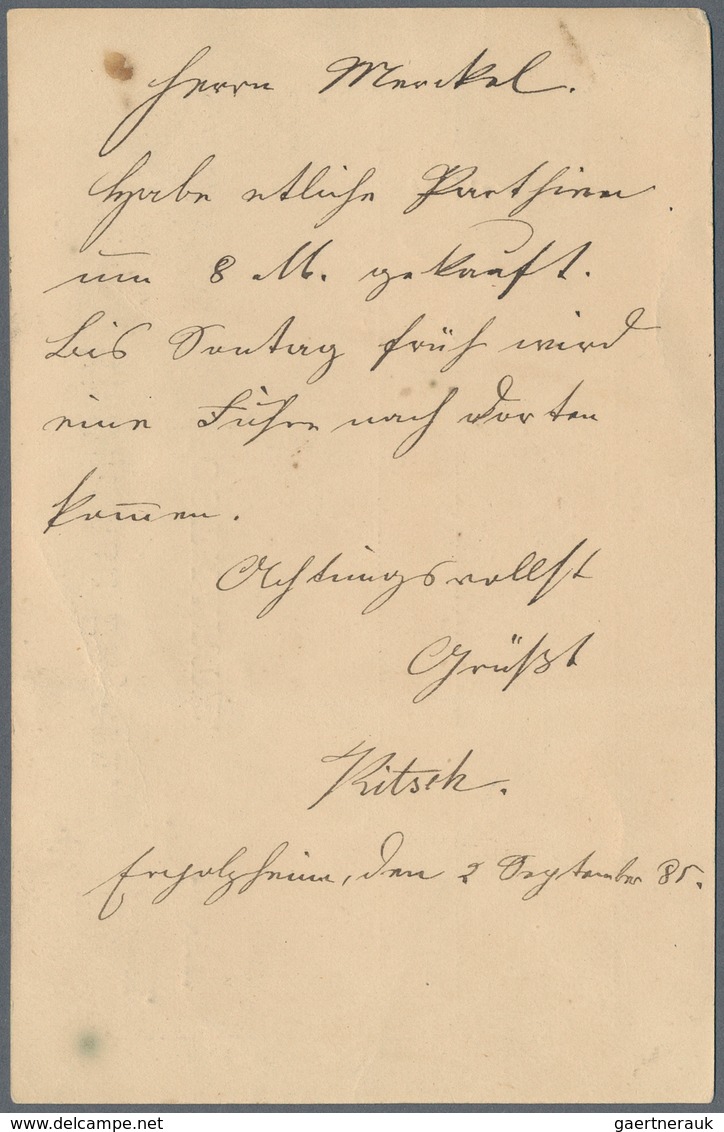 Herrn Merckel.
Habe etliche Parthien
um 8 M. gekauft.
Bis Sontag früh wird
eine Fuhre nach dorten
kom̅en.
Achtungsvollst
Grüßt
Kitsch.
Ergolzheim, den 2 September 85.
delcampe.net
gaertnerauk